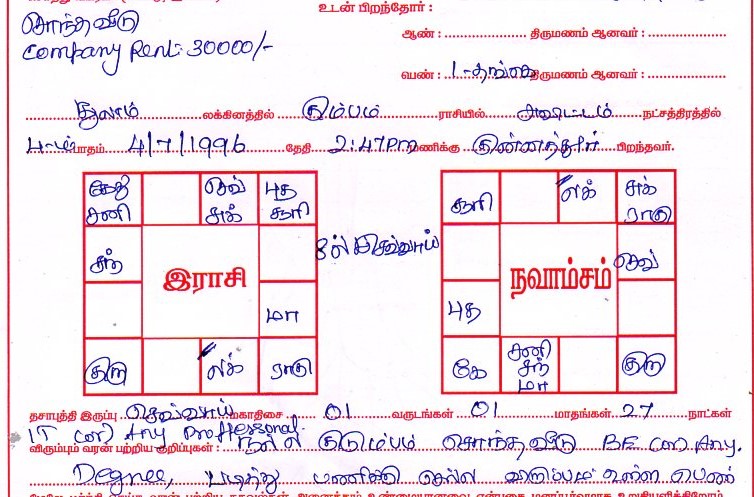 சொந்த வீடு
உடன் பிறந்தோர் :
Company Rent: 30000/-
ஆண் : திருமணம் ஆனவர் :
பெண் : 1-தங்கை திருமணம் ஆனவர் :
துலாம் லக்கினத்தில் கும்பம் ராசியில் அவிட்டம் நட்சத்திரத்தில்
4-ம் பாதம் 4/7/1996 தேதி 2:47Pm மணிக்கு குன்னத்தூர் பிறந்தவர்.
கேது சனி
செவ் சுக்
புத சூரி
சந்
இராசி
மா
குரு
லக்
ராகு
8ல் செவ்வாய்
சூரி
லக்
சுக் ராகு
செவ்
நவாம்சம்
புத
கே
சனி சந் மா
குரு
தசாபுத்தி இருப்பு செவ்வாய் மகாதிசை 01 வருடங்கள் 01 மாதங்கள் 27 நாட்கள்
IT (or) Any Proffessional.
விரும்பும் வரன் பற்றிய குறிப்புகள் : நல்ல குடும்பம் சொந்த வீடு BE (or) Any.
Degree, படித்து பணிக்கு செல்ல விருப்பம் உள்ள பெண்